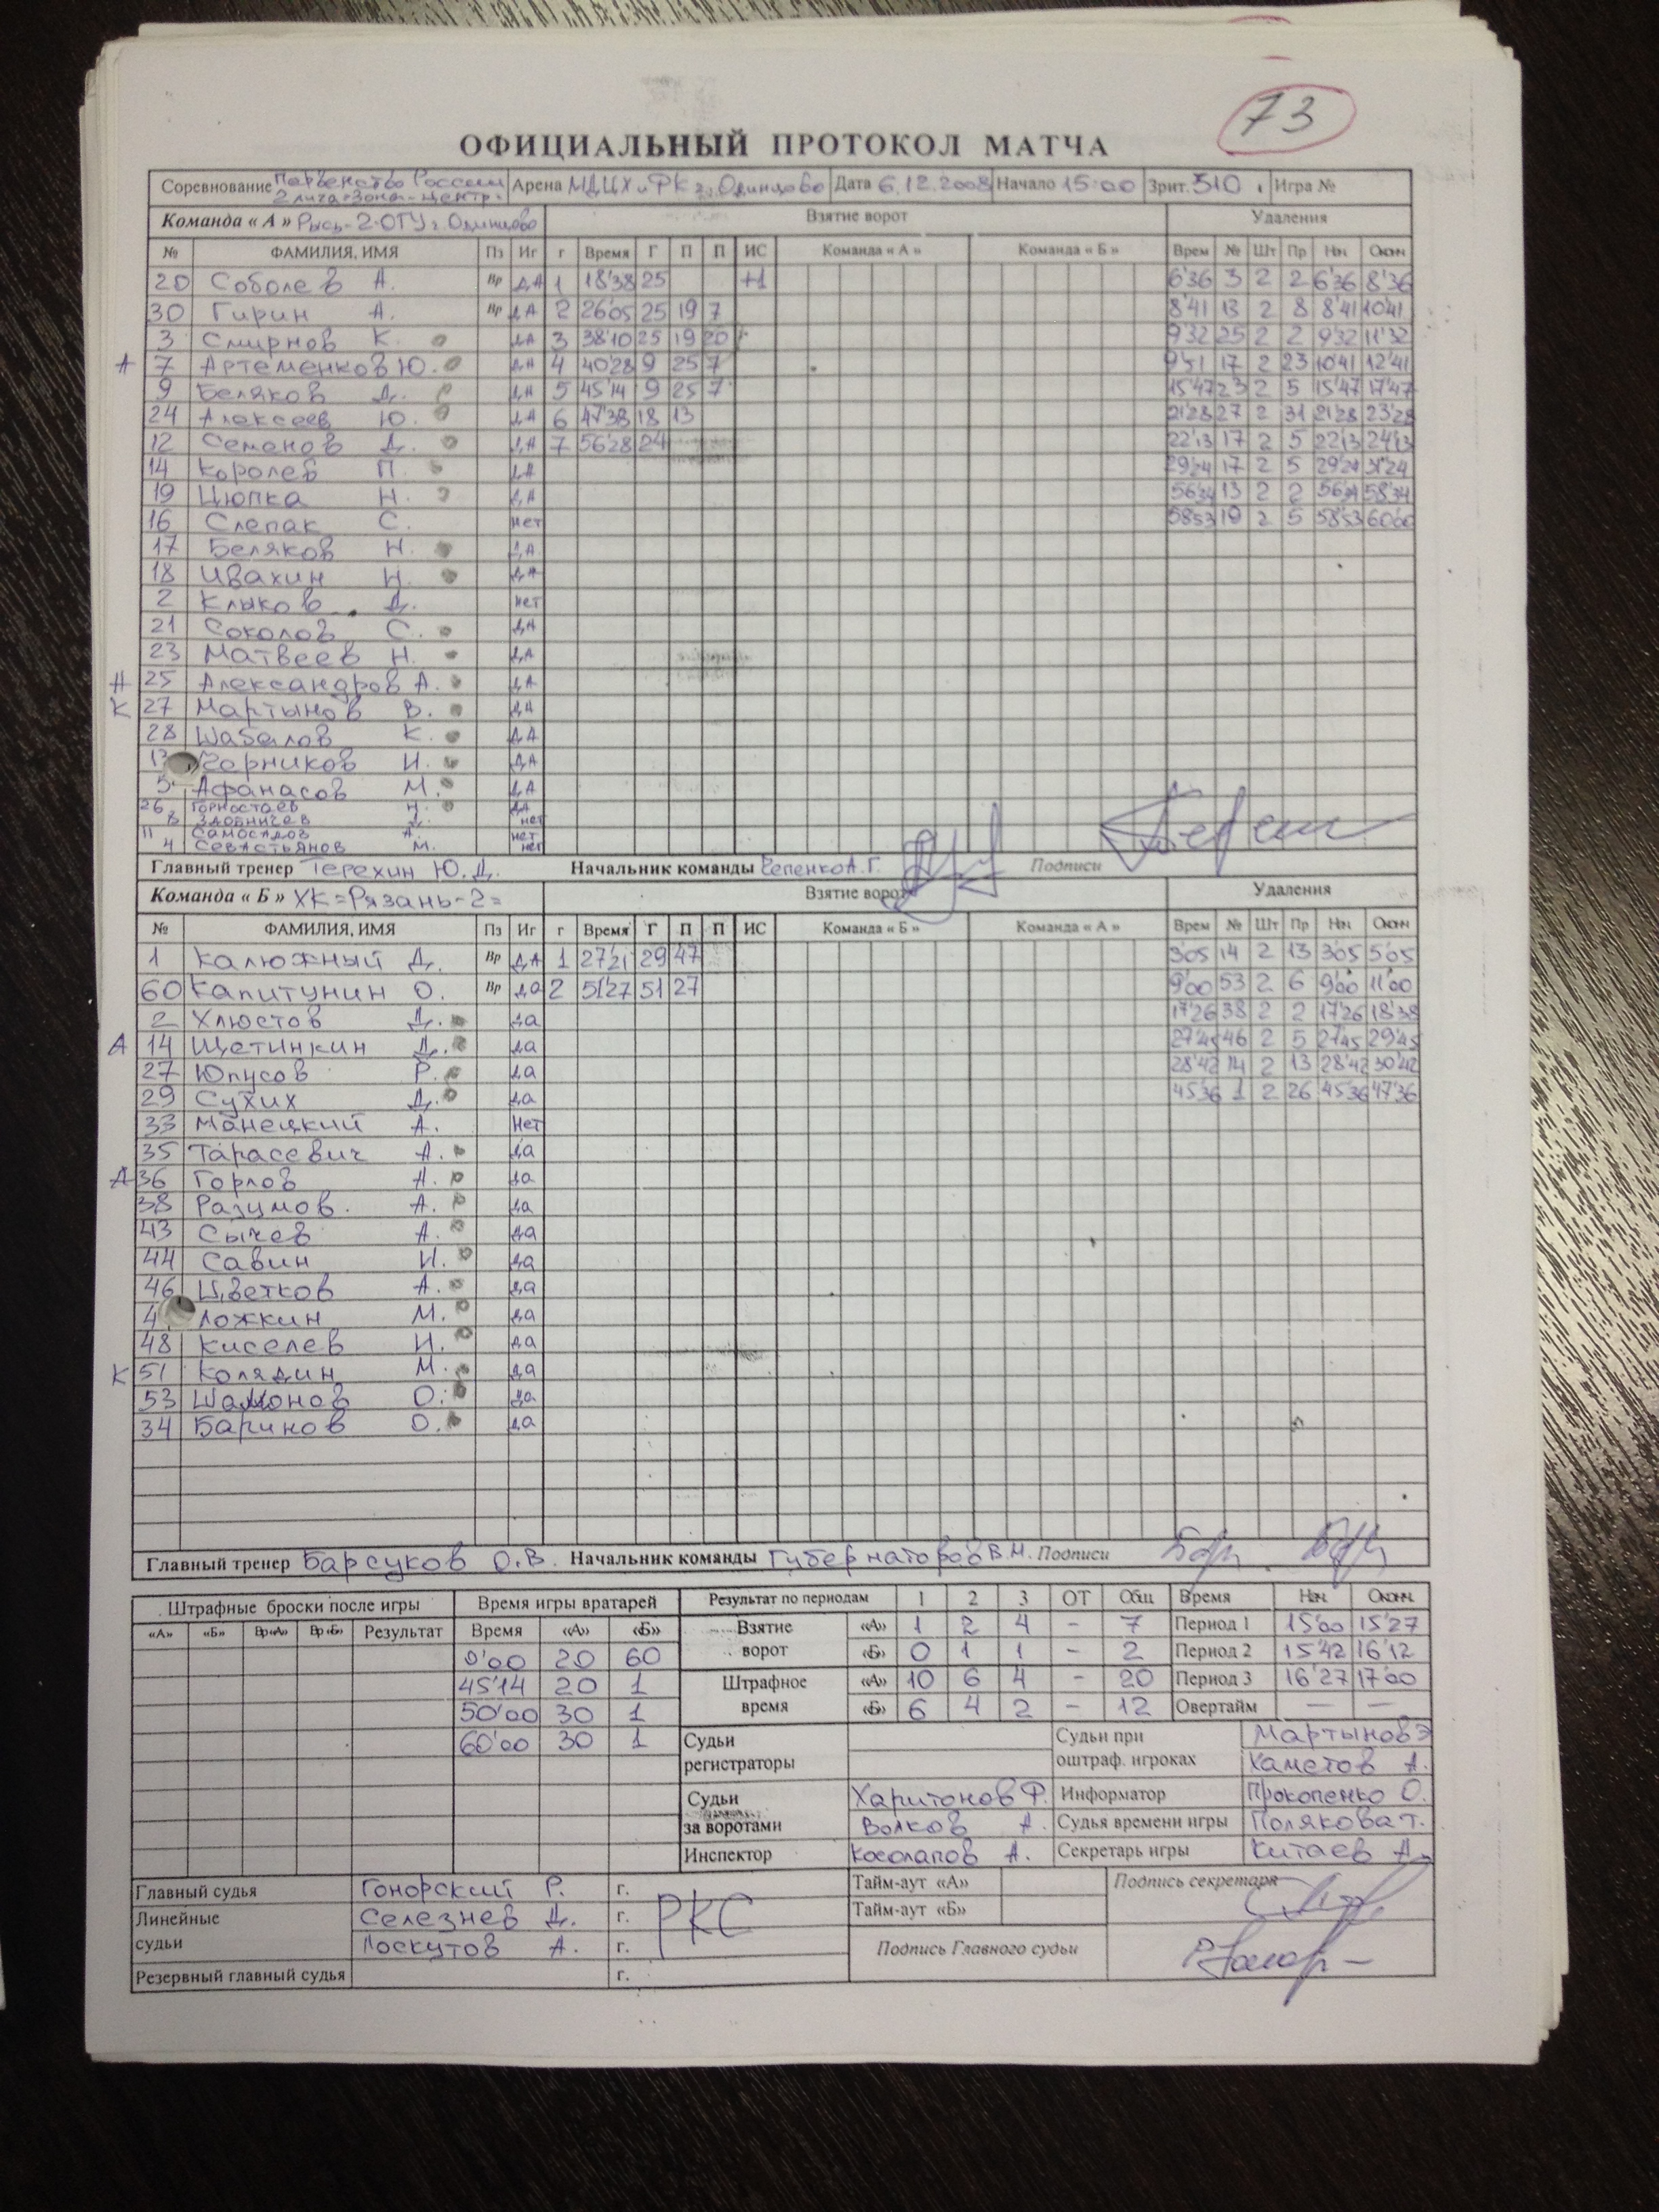 73
ОФИЦИАЛЬНЫЙ ПРОТОКОЛ МАТЧА
Соревнование Первенство России 2 лига-зона-Центр. Арена МДЦХиФК г. Одинцово Дата 6.12.2008 Начало 15:00 Зрит. 510 Игра №
Команда « А » Рысь-2-ОГУ г. Одинцово Взятие ворот Удаления
№ ФАМИЛИЯ, ИМЯ Пз Иг г Время Г П П ИС Команда « А » Команда « Б » Врем № Шт Пр Нач Оконч
20 Соболев А. Вр ДА 1 18'38 25 +1 6'36 3 2 2 6'36 8'36
30 Гирин А. Вр ДА 2 26'05 25 19 7 8'41 13 2 8 8'41 10'41
3 Смирнов К. ДА 3 38'10 25 19 20 9'32 25 2 2 9'32 11'32
А 7 Артеменков Ю. ДА 4 40'28 9 25 7 9'51 17 2 23 10'41 12'41
9 Беляков Д. ДА 5 45'14 9 25 7 15'47 23 2 5 15'47 17'47
24 Алексеев Ю. ДА 6 47'38 18 13 21'28 27 2 31 21'28 23'28
12 Семенов Д. ДА 7 56'28 24 22'13 17 2 5 22'13 24'13
14 Королев П. ДА 29'24 17 2 5 29'24 31'24
19 Цюпка Н. ДА 56'34 13 2 2 56'34 58'34
16 Слепак С. нет 58'53 19 2 5 58'53 60'00
17 Беляков Н. ДА
18 Ивахин Н. ДА
2 Клыков Д. нет
21 Соколов С. ДА
23 Матвеев Н. ДА
А 25 Александров А. ДА
К 27 Мартынов В. ДА
28 Шабалов К. ДА
13 Черников И. ДА
5 Афанасов М. ДА
26 Горностаев Н. ДА
8 Здобничев Д. нет
11 Самосадов А. нет
4 Севастьянов М. нет
Главный тренер Терехин Ю.Д. Начальник команды Чепенко А.Г. Подписи
Команда « Б » ХК=Рязань-2= Взятие ворот Удаления
№ ФАМИЛИЯ, ИМЯ Пз Иг г Время Г П П ИС Команда « Б » Команда « А » Врем № Шт Пр Нач Оконч
1 Калюжный Д. Вр ДА 1 27'21 29 47 3'05 14 2 13 3'05 5'05
60 Капитунин О. Вр да 2 51'27 51 27 9'00 53 2 6 9'00 11'00
2 Хлюстов Д. да 17'26 38 2 2 17'26 18'38
А 14 Щетинкин Д. да 27'45 46 2 5 27'45 29'45
27 Юнусов Р. да 28'42 14 2 13 28'42 30'42
29 Сухих Д. да 45'36 1 2 26 45'36 47'36
33 Манецкий А. Нет
35 Тарасевич А. да
А 36 Горлов А. да
38 Разумов А. да
43 Сычев А. да
44 Савин И. да
46 Цветков А. да
4 Ложкин М. да
48 Киселев И. да
К 51 Колядин М. да
53 Шамонов О. да
34 Баринов О. да
Главный тренер Барсуков О.В. Начальник команды Губернаторов В.Н. Подписи
Штрафные броски после игры Время игры вратарей Результат по периодам 1 2 3 ОТ Общ Время Нач. Оконч.
«А» «Б» Вр «А» Вр «Б» Результат Время «А» «Б» Взятие ворот «А» 1 2 4 - 7 Период 1 15'00 15'27
0'00 20 60 «Б» 0 1 1 - 2 Период 2 15'42 16'12
45'14 20 1 Штрафное время «А» 10 6 4 - 20 Период 3 16'27 17'00
50'00 30 1 «Б» 6 4 2 - 12 Овертайм — —
60'00 30 1 Судьи регистраторы Судьи при оштраф. игроках Мартынов Э
Хаметов А.
Судьи за воротами Харитонов Р. Информатор Прокопенко О.
Волков А. Судья времени игры Полякова Т.
Инспектор Косолапов А. Секретарь игры Китаев А.
Главный судья Гонорский Р. г. Тайм-аут «А» Подпись секретаря
Линейные судьи Селезнев Д. г. РКС Тайм-аут «Б»
Лоскутов А. г. Подпись Главного судьи
Резервный главный судья г.